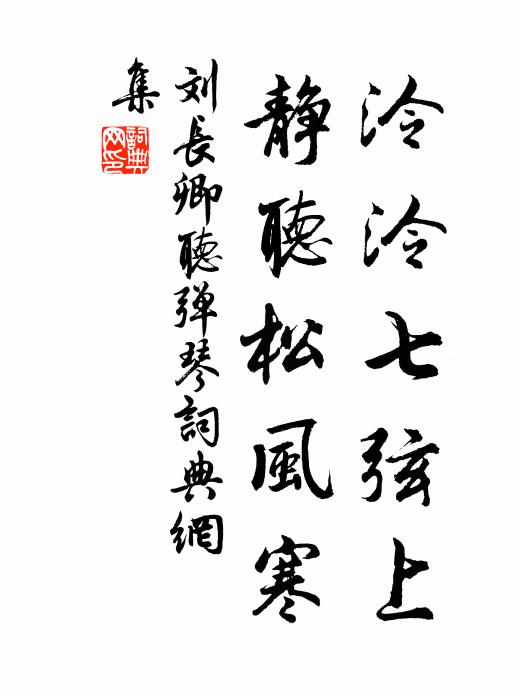 泠泠七弦上
静聽松風寒
刘長卿聽弹琴詞典網
集
詞典
网印